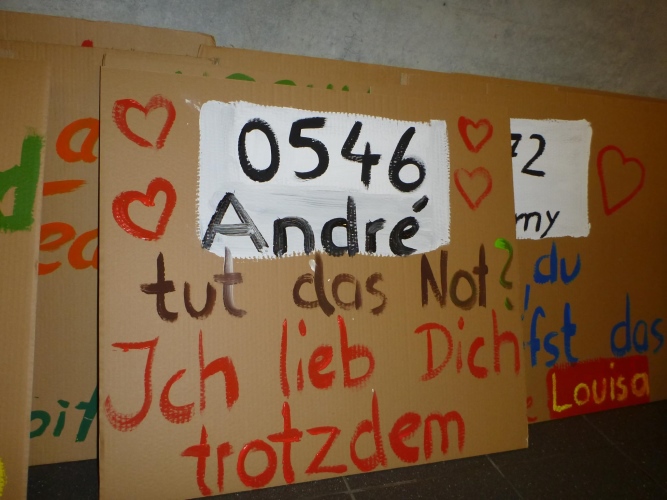 0546
André
tut das Not?
Ich lieb Dich
trotzdem
72
my
,du
fst das
Louisa